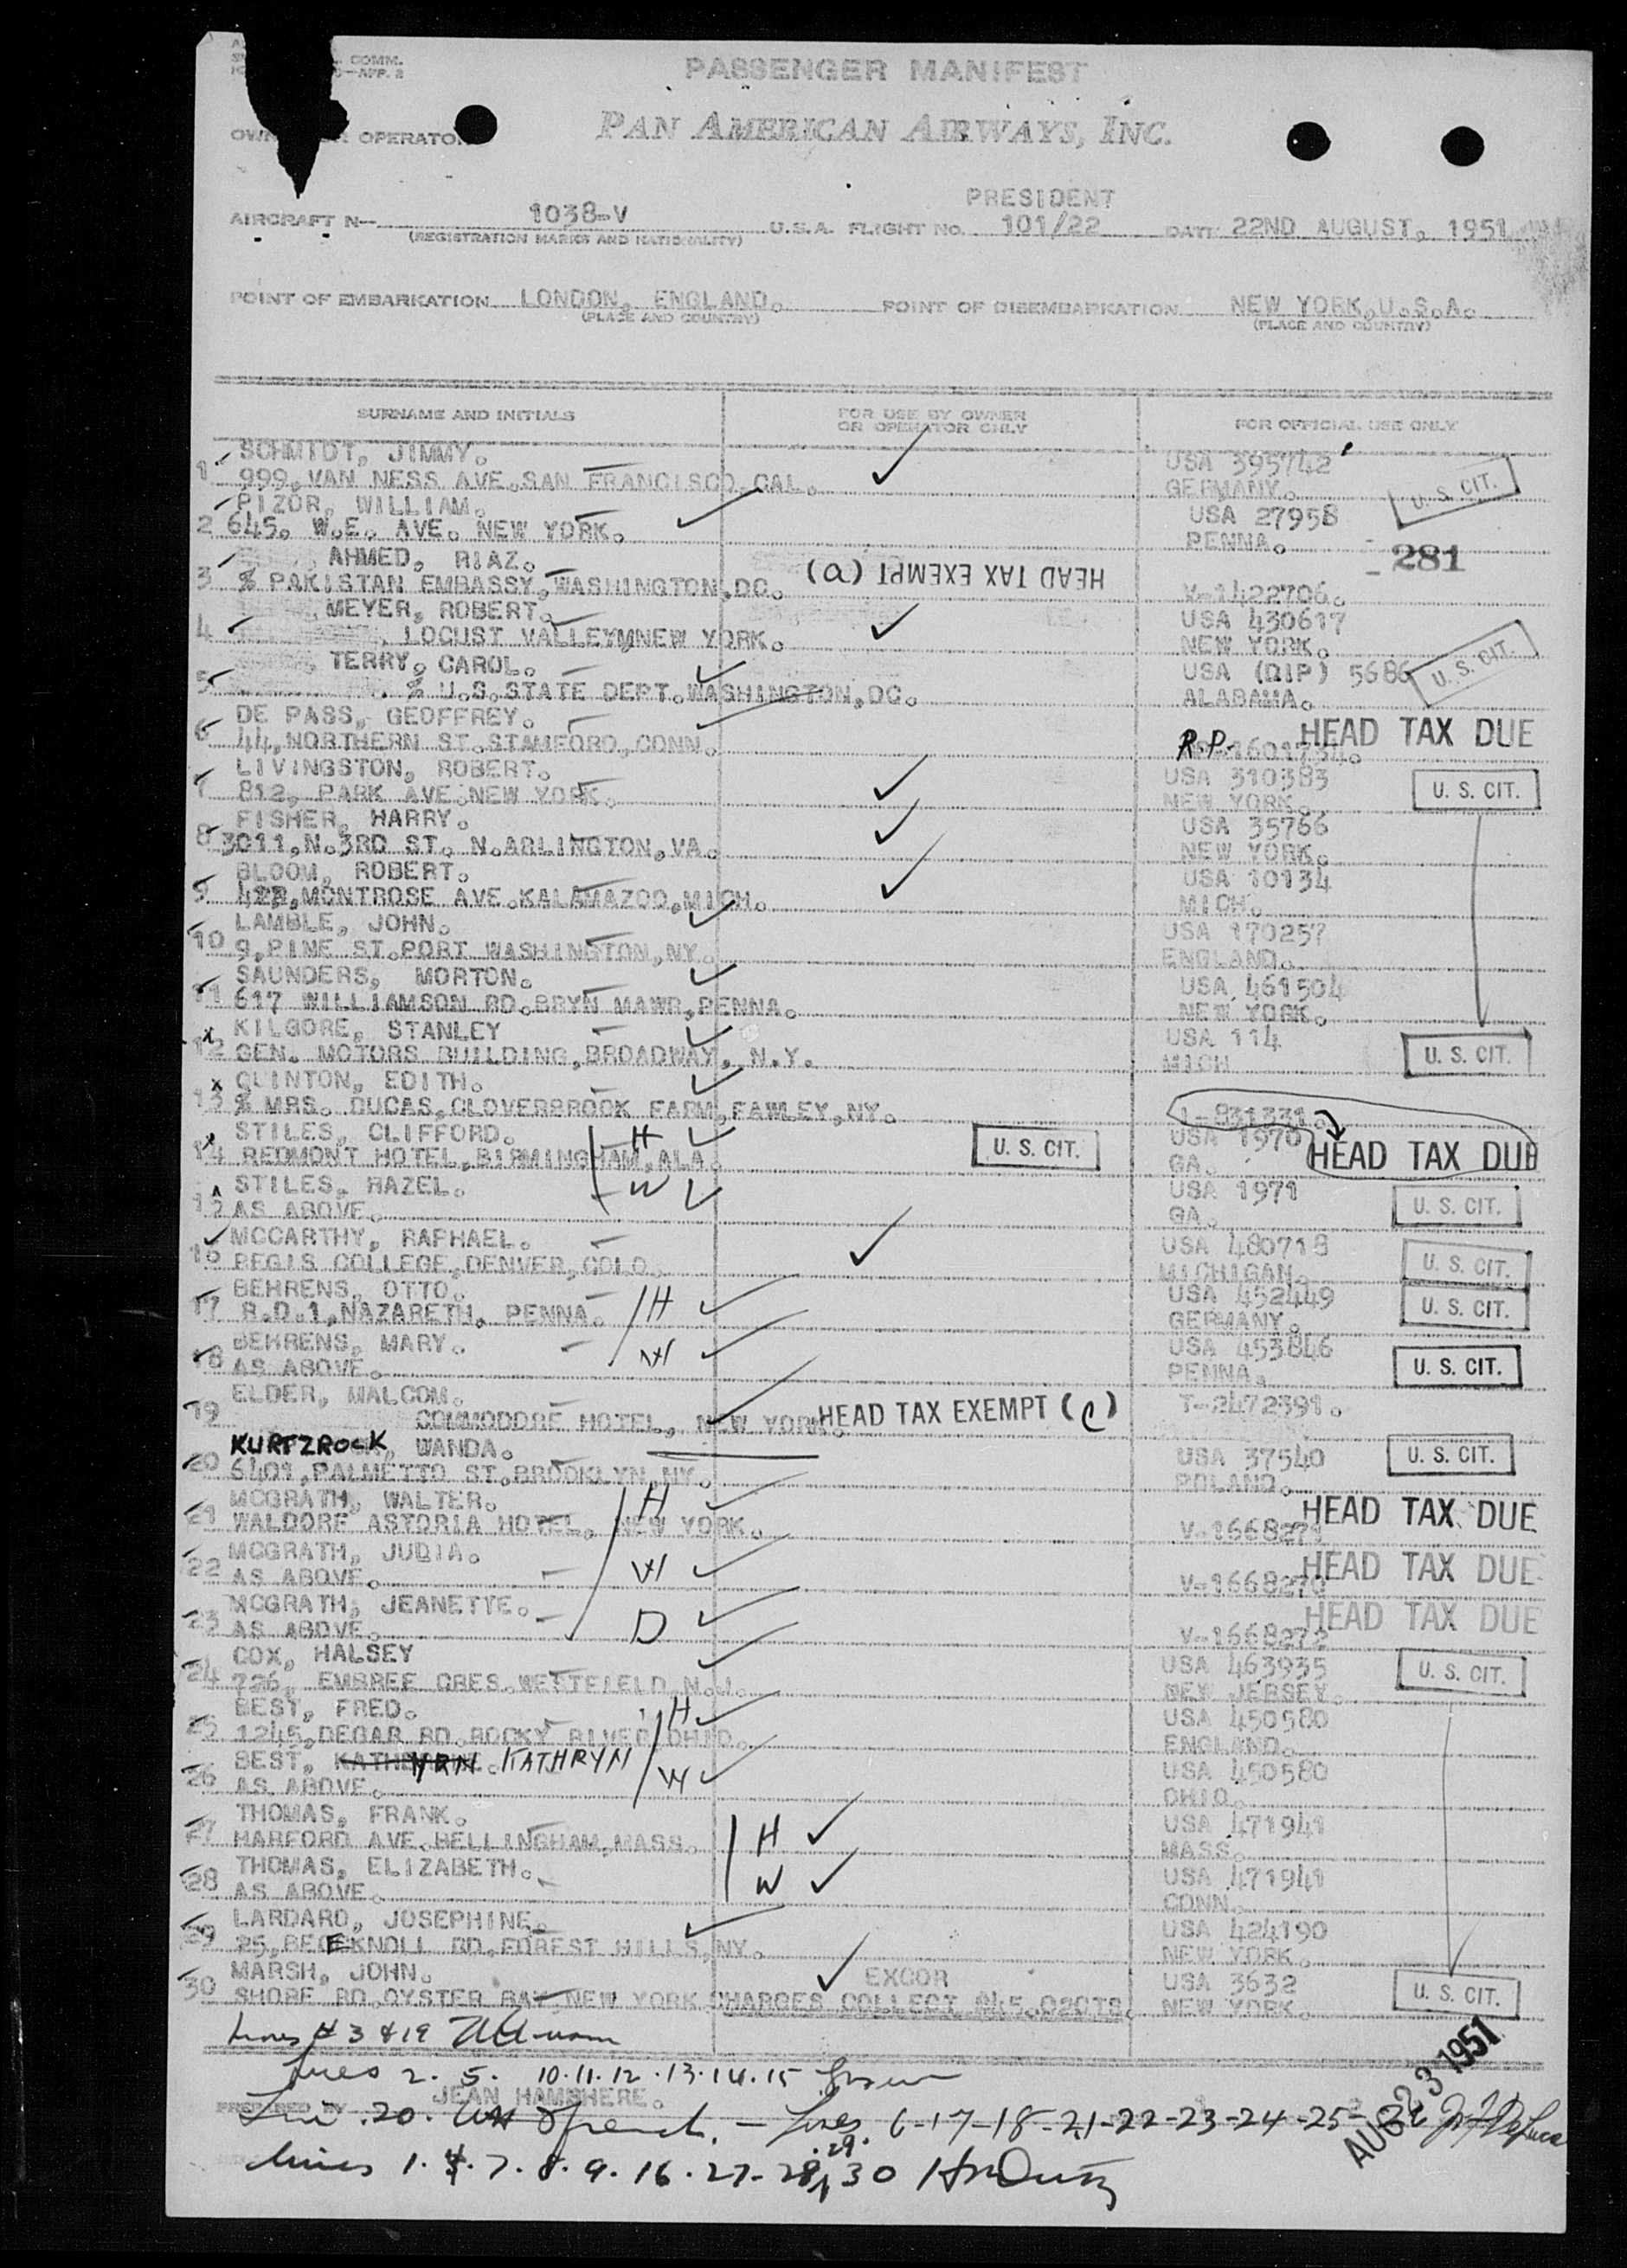 COMM.
—APP. 2
PASSENGER MANIFEST
PAN AMERICAN AIRWAYS, INC.
OPERATOR
PRESIDENT
AIRCRAFT N— 1038-V U.S.A. FLIGHT NO. 101/22 DATE 22ND AUGUST, 1951
(REGISTRATION MARKS AND NATIONALITY)
POINT OF EMBARKATION LONDON, ENGLAND. POINT OF DISEMBARKATION NEW YORK,U.S.A.
(PLACE AND COUNTRY) (PLACE AND COUNTRY)
SURNAME AND INITIALS FOR USE BY OWNER OR OPERATOR ONLY FOR OFFICIAL USE ONLY
SCHMIDT, JIMMY. USA 395742
1 999,VAN NESS AVE.SAN FRANCISCO,CAL. GERMANY. U. S. CIT.
PIZOR, WILLIAM. USA 27958
2 645, W.E. AVE. NEW YORK. PENNA. 281
AHMED, RIAZ. HEAD TAX EXEMPT (a)
3 % PAKISTAN EMBASSY,WASHINGTON,DC. V-1422706.
MEYER, ROBERT. USA 430617
4 LOCUST VALLEYMNEW YORK. NEW YORK.
TERRY, CAROL. USA (DIP) 5686 U. S. CIT.
5 % U.S.STATE DEPT.WASHINGTON,DC. ALABAMA.
DE PASS, GEOFFREY. HEAD TAX DUE
6 44,NORTHERN ST.STAMFORD,CONN. R.P. 1601734.
LIVINGSTON, ROBERT. USA 310383
7 812, PARK AVE.NEW YORK. NEW YORK. U. S. CIT.
FISHER, HARRY. USA 35766
8 3011,N.3RD ST. N.ARLINGTON,VA. NEW YORK.
BLOOM, ROBERT. USA 10134
9 428,MONTROSE AVE.KALAMAZOO,MICH. MICH.
LAMBLE, JOHN. USA 170257
10 9,PINE ST.PORT WASHINGTON,NY. ENGLAND.
SAUNDERS, MORTON. USA 461504
11 617 WILLIAMSON RD.BRYN MAWR,PENNA. NEW YORK.
KILGORE, STANLEY USA 114
12 GEN. MOTORS BUILDING,BROADWAY, N.Y. MICH U. S. CIT.
QUINTON, EDITH.
13 % MRS. DUCAS,CLOVERBROOK FARM,FAWLEY,NY. I-831331.
STILES, CLIFFORD. H USA 1970 HEAD TAX DUE
14 REDMONT HOTEL,BIRMINGHAM,ALA. U. S. CIT. GA.
STILES, HAZEL. W USA 1971
15 AS ABOVE. GA. U. S. CIT.
MCCARTHY, RAPHAEL. USA 480718
16 REGIS COLLEGE,DENVER,COLO. MICHIGAN. U. S. CIT.
BEHRENS, OTTO. H USA 452449
17 R.D.1,NAZARETH, PENNA. GERMANY. U. S. CIT.
BEHRENS, MARY. W USA 453846
18 AS ABOVE. PENNA. U. S. CIT.
ELDER, MALCOM. T-2472391.
19 COMMODORE HOTEL, NEW YORK. HEAD TAX EXEMPT (c)
KURTZROCK, WANDA. USA 37540 U. S. CIT.
20 6401,PALMETTO ST.BROOKLYN,NY. POLAND.
MCGRATH, WALTER. H HEAD TAX DUE
21 WALDORF ASTORIA HOTEL, NEW YORK. V-1668271
MCGRATH, JUDIA. W HEAD TAX DUE
22 AS ABOVE. V-1668270
MCGRATH, JEANETTE. D HEAD TAX DUE
23 AS ABOVE. V-1668272
COX, HALSEY USA 463935 U. S. CIT.
24 726, EMBREE CRES.WESTFIELD,N.J. NEW JERSEY.
BEST, FRED. H USA 450580
25 1245,DEGAR RD.ROCKY RIVER,OHIO. ENGLAND.
BEST, KATHRYN W USA 450580
26 AS ABOVE. OHIO.
THOMAS, FRANK. USA 471941
27 HARFORD AVE.HELLINGHAM,MASS. H MASS.
THOMAS, ELIZABETH. USA 471941
28 AS ABOVE. W CONN.
LARDARO, JOSEPHINE. USA 424190
29 25,BEEKNOLL RD.FOREST HILLS,NY. NEW YORK.
MARSH, JOHN. EXCOR USA 3632
30 SHORE RD.OYSTER BAY,NEW YORK CHARGES COLLECT $45.02CTS. NEW YORK. U. S. CIT.
Lines # 3 & 19
Lines 2. 5. 10.11.12.13.14.15
PREPARED BY JEAN HAMSHERE.
Line 20. Lines 6-17-18-21-22-23-24-25-26
AUG 23 1951
Lines 1.4.7.8.9.16.27-28.29.30